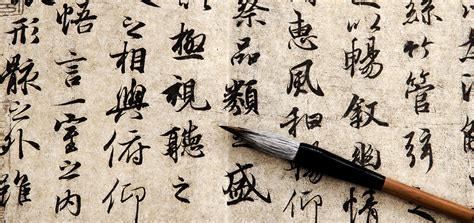 絲竹管弦
以暢叙幽情
惠風和暢仰
察品類之盛
以極視聽之
之相與俯仰
悟言一室之內
形骸之外雖